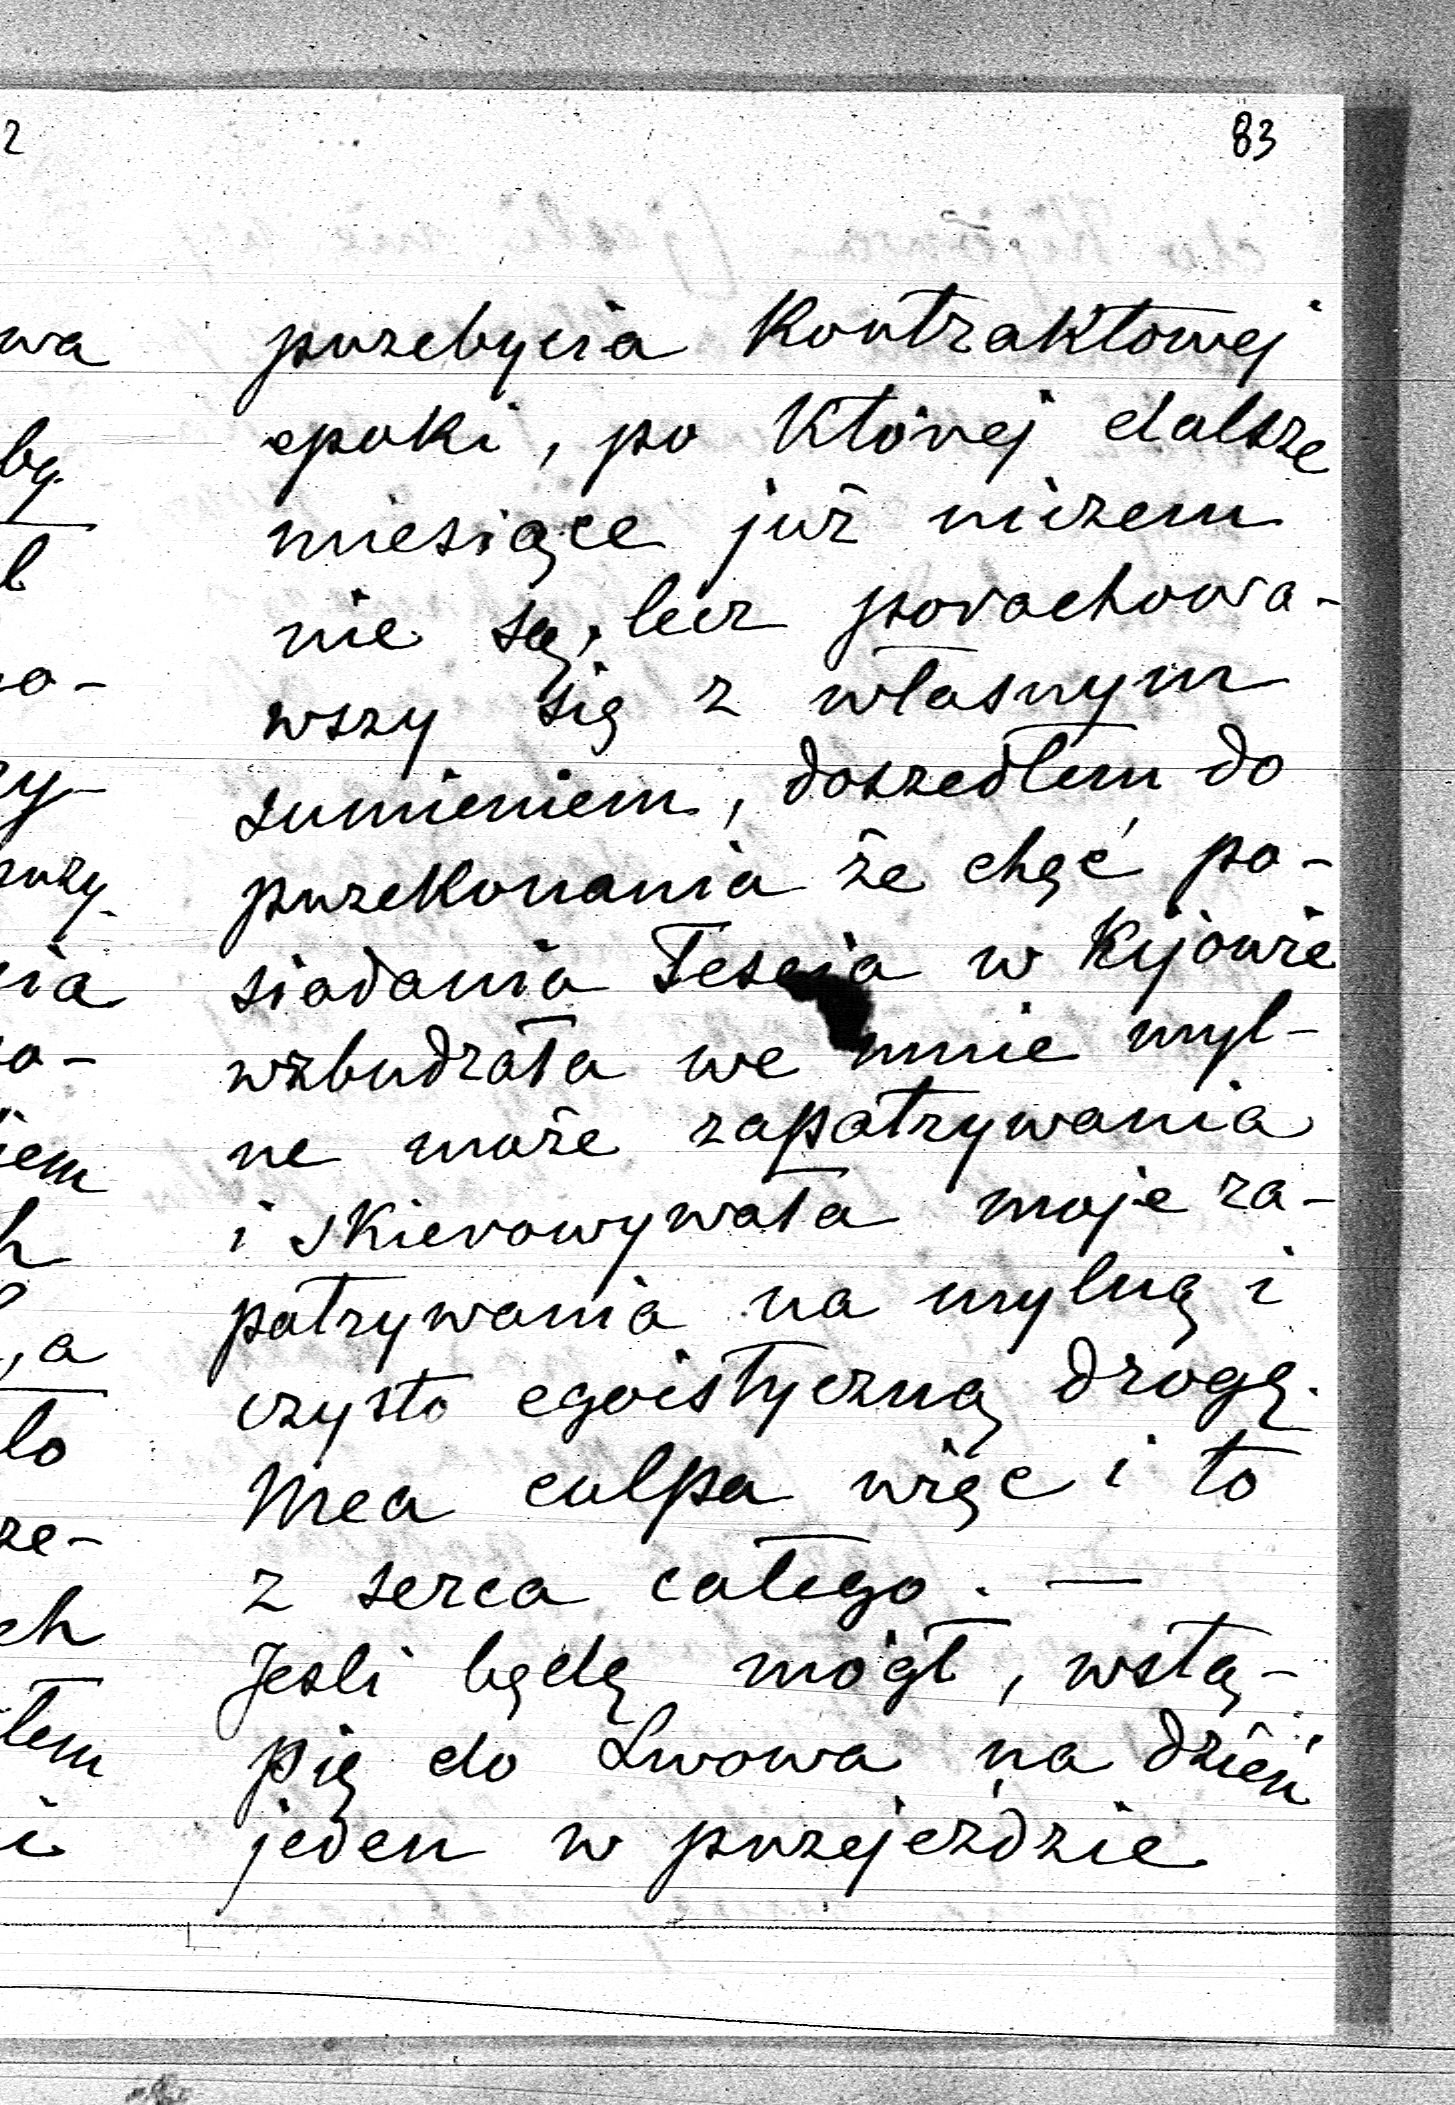 83
przebycia Kontraktowej
epoki, po Której dalsze
miesiące już niczem
nie są, lecz porachowa-
wszy się z własnym
sumieniem, doszedłem do
przekonania że chęć po-
siadania Tescia w Kijowie
wzbudzała we mnie myl-
ne może zapatrywania
i skierowywała moje za-
patrywania na mylną i
czysto egoistyczną drogę.
Mea culpa więc i to
z serca całego. —
Jesli będę mógł, wstą-
pię do Lwowa na dzień
jeden w przejeździe